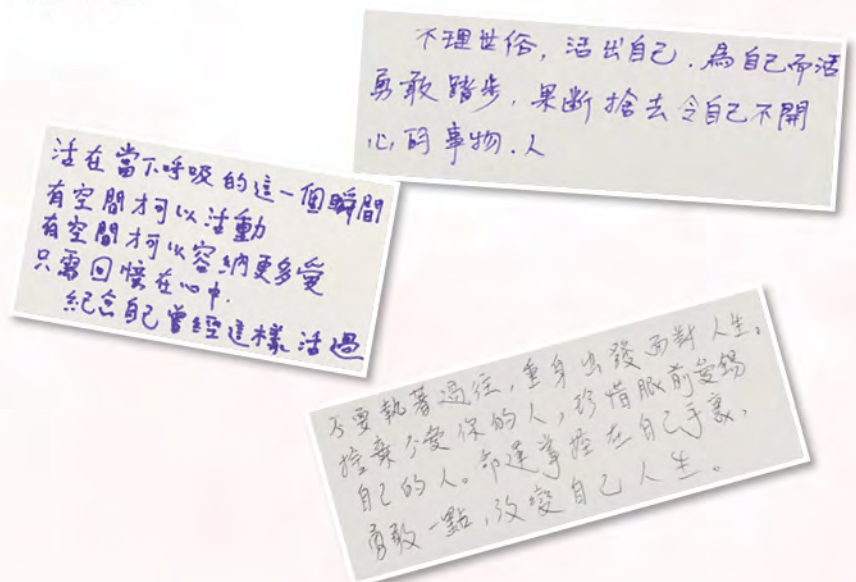 不理世俗，活出自己．為自己而活
勇敢踏步，果斷捨去令自己不開
心的事物．人
活在當下呼吸的這一個瞬間
有空間才可以活動
有空間才可以容納更多愛
只需回憶在心中．
紀念自己曾經這樣活過
不要執著過往，重身出發面對人生。
捨棄不愛你的人，珍惜眼前愛錫
自己的人。命運掌控在自己手裏，
勇敢一點，改變自己人生。